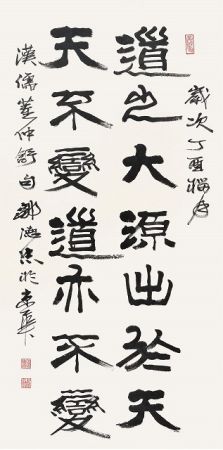 歲次丁酉
道之大源出於天
天不變道亦不變
漢儒董仲舒句 於京華